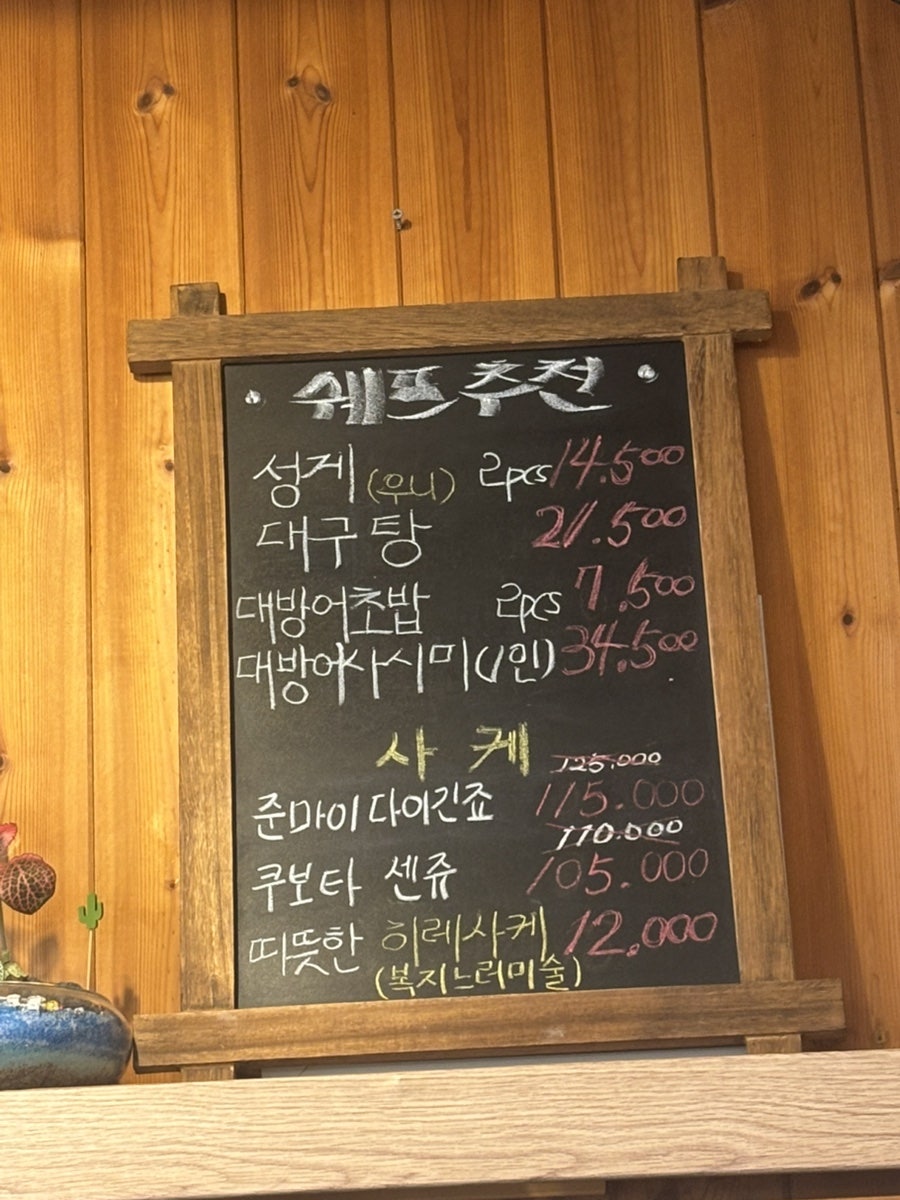 · 쉐프추천 ·
성게 (우니) 2pcs 14.500
대구탕 21.500
대방어초밥 2pcs 7.500
대방어사시미 (1인) 34.500
사케
125.000
준마이 다이긴죠 115.000
110.000
쿠보타 센쥬 105.000
따뜻한 히레사케 12.000
(복지느러미술)